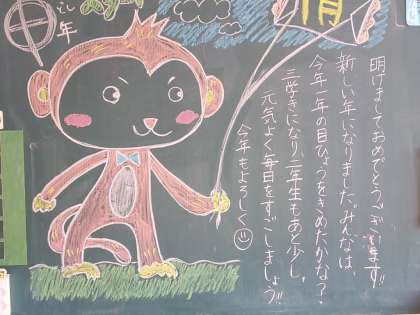 明けましておめでとうございます!!
新しい年になりました。みんなは、
今年一年の目ひょうをきめたかな?
三学きになり、二年生もあと少し。
元気よく毎日をすごしましょう!!
今年もよろしく
申年